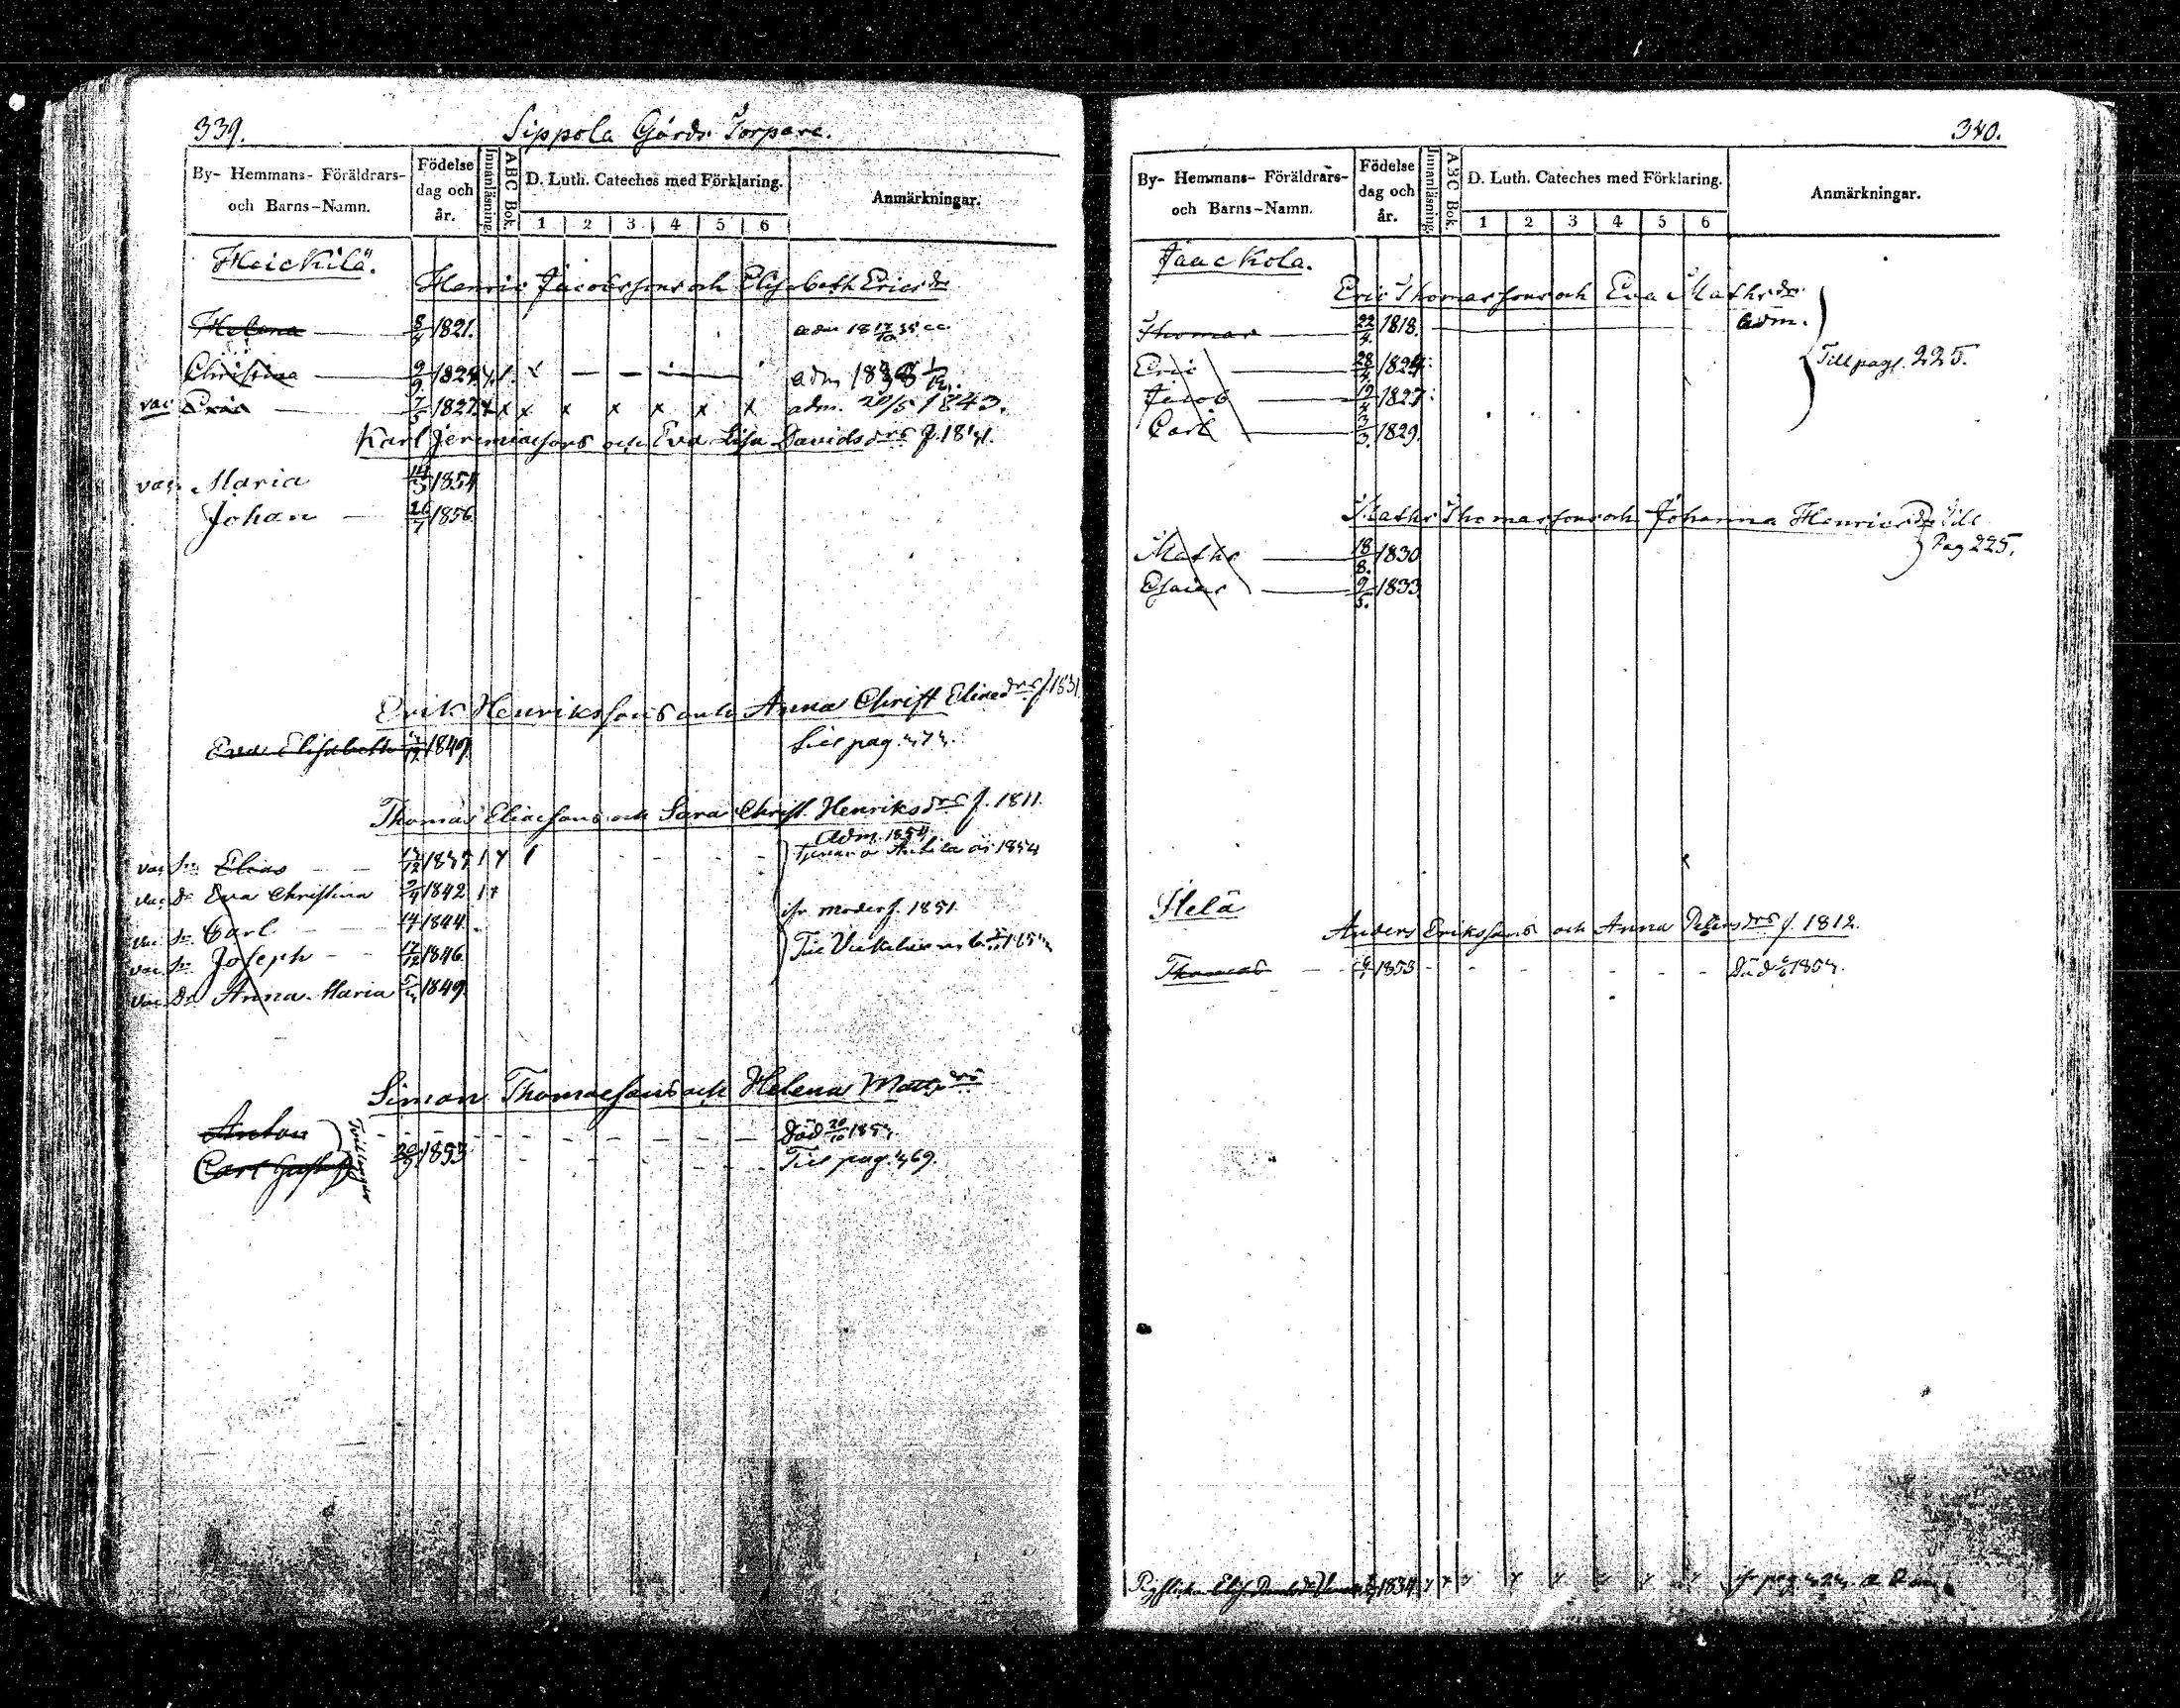 339.
Sippola Gårds Torpare.
By- Hemmans- Föräldrars- och Barns-Namn.
Födelse dag och år.
Innanläsning.
ABC Bok.
D. Luth. Cateches med Förklaring.
1 2 3 4 5 6
Anmärkningar.
Heickilä.
Henric Jacobssons och Elisabeth Ericsdr
Helena 8/4 1821. adm 18
Christina 9/9 1824 adm 1838
vac Eva 7/5 1827 x x x x x x x adm. 20/5 1843.
Karl Jeremiassons och Eva Lisa Davidsdrs f. 1831.
vac. Maria 14/3 1854
Johan 26/7 1856
Erik Henrikssons och Anna Christ Eliædrs f. 1831
Eva Elisabeth 1849. Till pag.
Thomas Eliassons och Sara Christ. Henriksdrs f. 1811.
Adm. 1854
vac. Sn Elias 1837 tjenar a Anhila år 1854
vac. Dr Eva Christina 9/4 1842
vac. Sn Carl 1844. modern f. 1851.
vac. Sn Joseph 12/12 1846.
vac. Dr Anna Maria 1849.
Simon Thomassons och Helena Mattsdrs
Anton Död 20/10 1854.
Tvillingar
Carl Gustaf 1853 Till pag. 469.
340.
By- Hemmans- Föräldrars- och Barns-Namn.
Födelse dag och år.
Innanläsning.
ABC Bok.
D. Luth. Cateches med Förklaring.
1 2 3 4 5 6
Anmärkningar.
Jaackola.
Eric Thomassons och Eva Mathsdr
Thomas 22/4. 1818. adm.
Eric 28/4 1824. Till pag. 225.
Jacob 19/4 1827
Carl 3/3. 1829.
Maths Thomassons och Johanna Henricsdr Till
Pag 225.
Maths 18/8. 1830
Esaias 9/5. 1833
Helä
Anders Erikssons och Anna Petersdrs f. 1812.
Thomas 1853 Död 1854.
1834